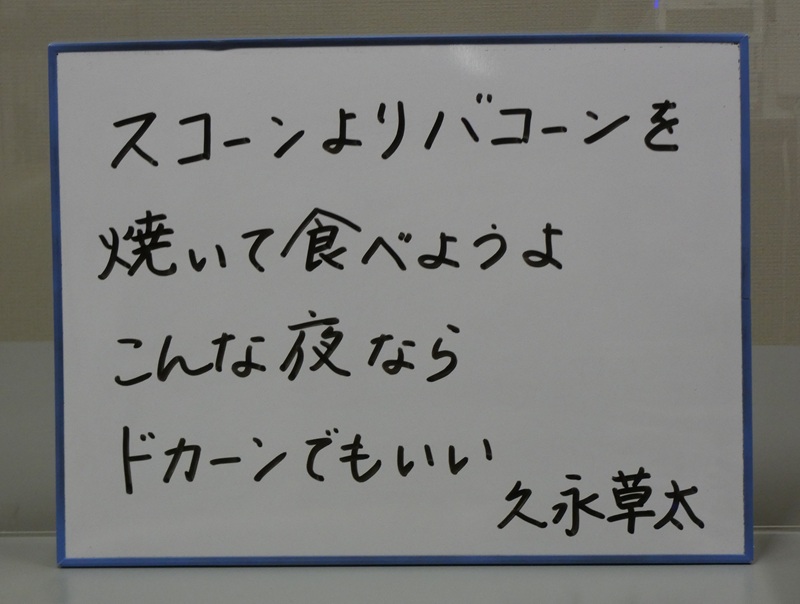 スコーンよりバコーンを
焼いて食べようよ
こんな夜なら
ドカーンでもいい
久永草太